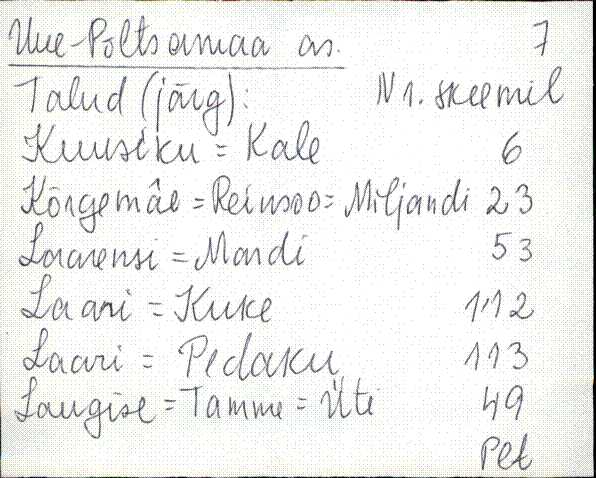 Uue-Põltsamaa as. 7
Talud (järg): Nr. skeemil
Kuusiku = Kale 6
Kõrgemäe = Reinsoo = Miljandi 23
Laarensi = Mardi 53
Laari = Kuke 112
Laari = Pedaku 113
Laugise = Tamme = Üti 49
Pet